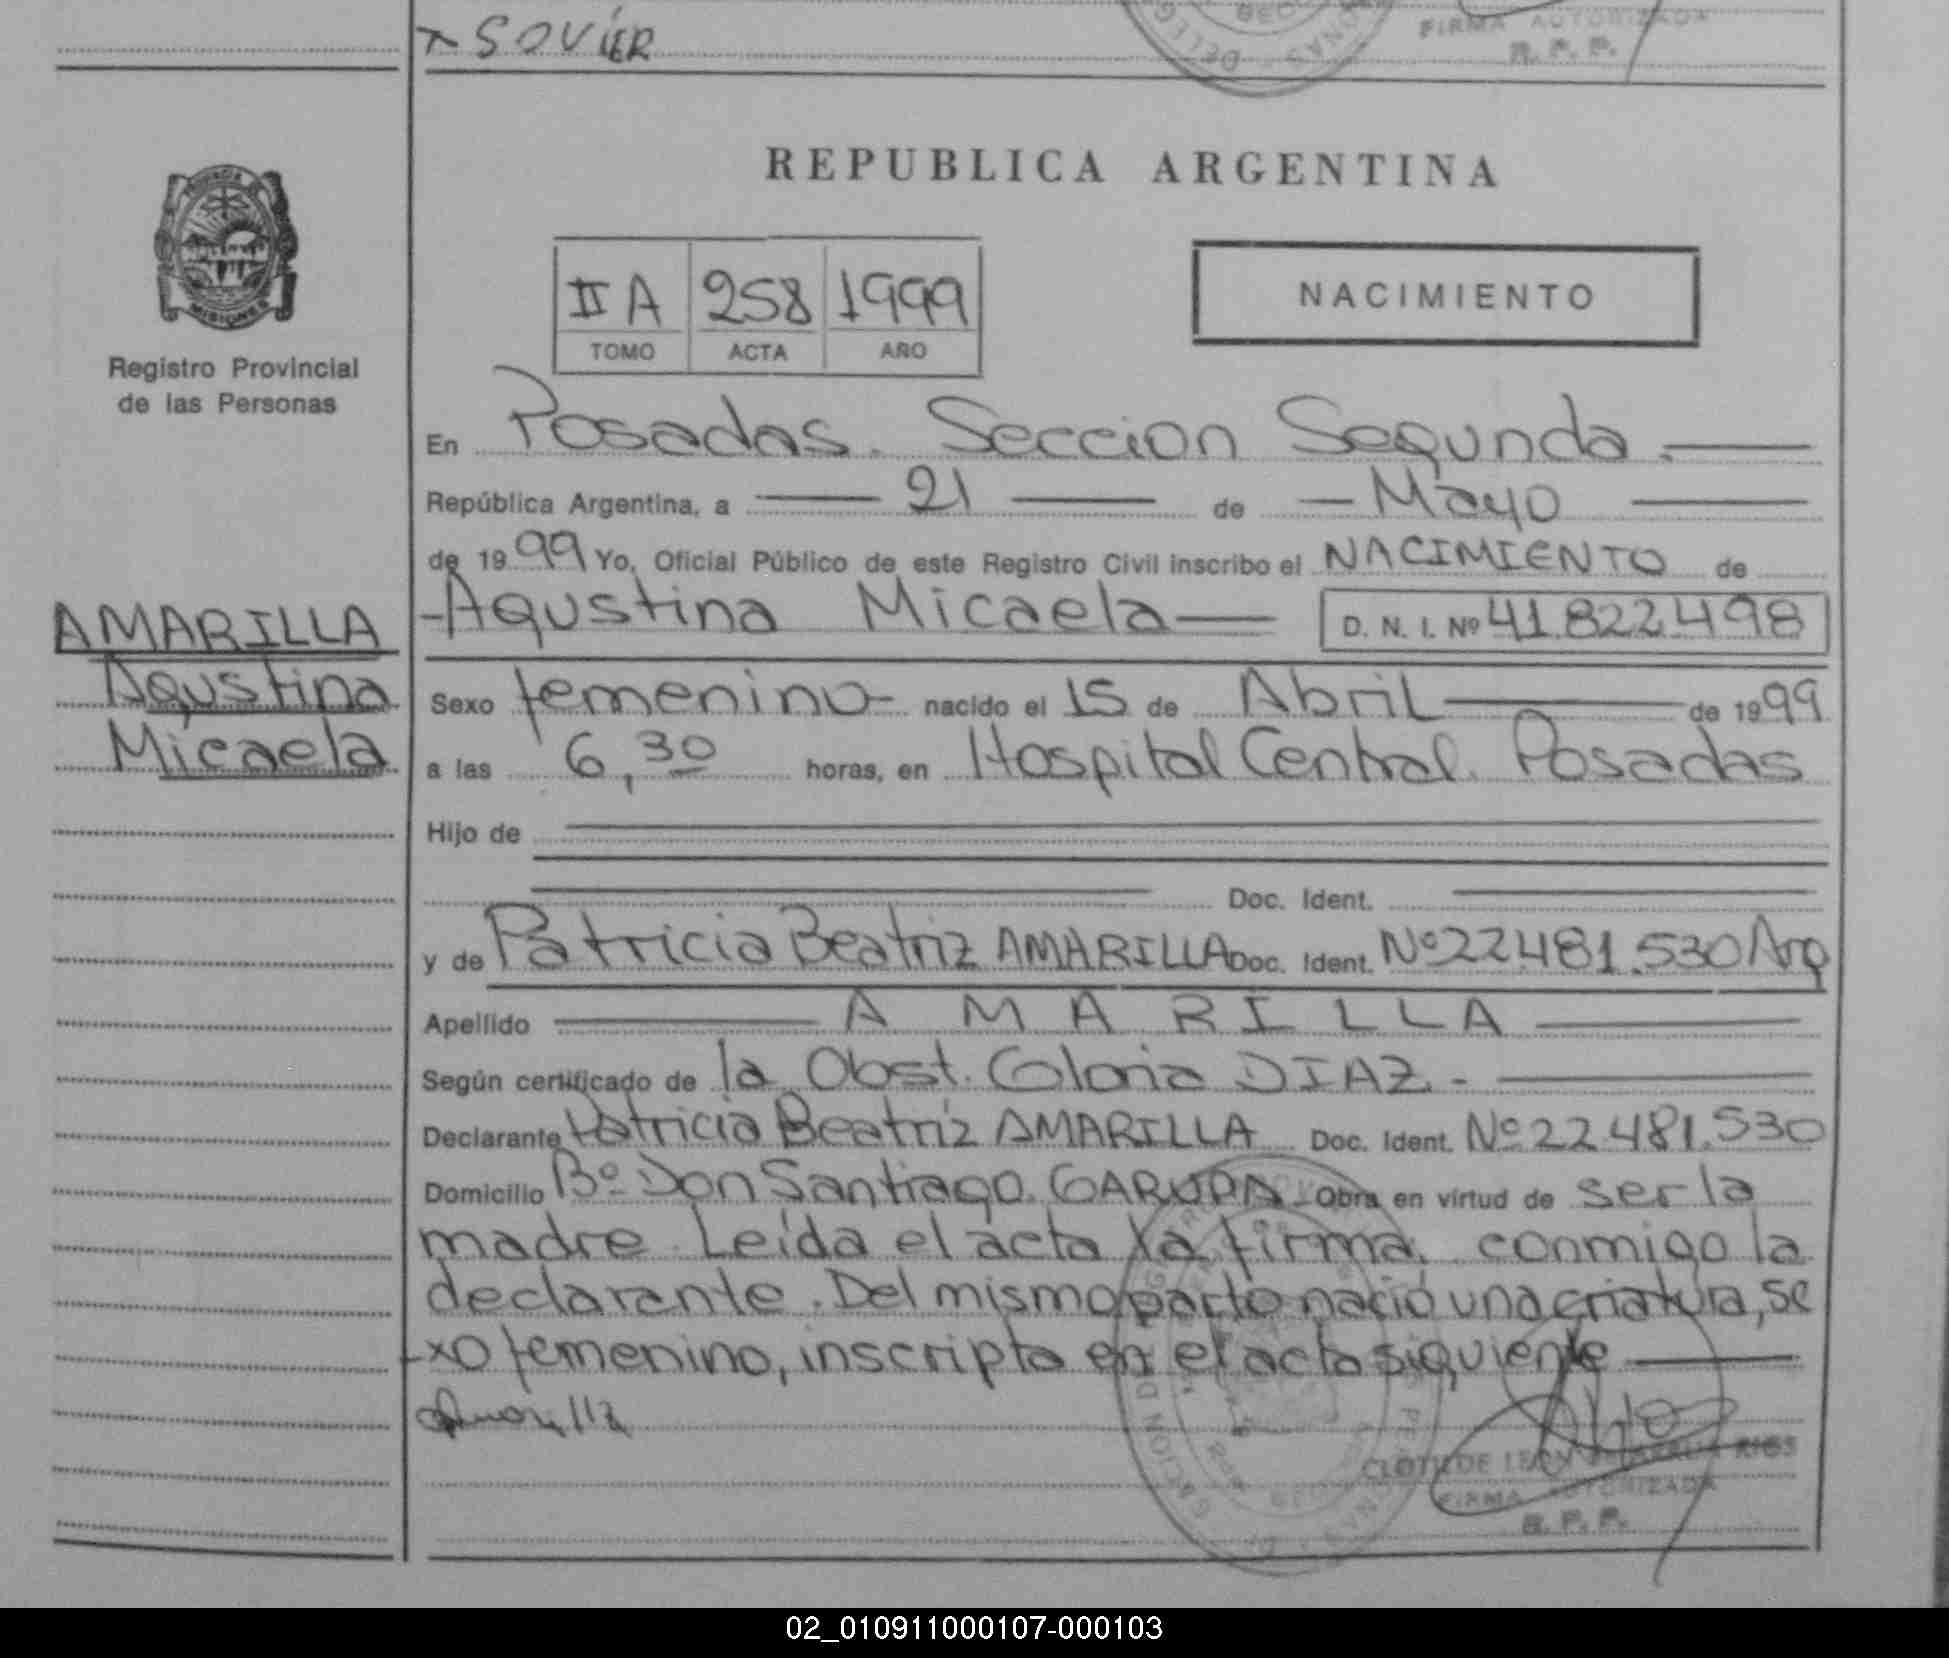 x SOVIER
FIRMA AUTORIZADA
R. P. P.
REPUBLICA ARGENTINA
PROVINCIA DE
MISIONES
Registro Provincial
de las Personas
II A 258 1999
TOMO ACTA AÑO
NACIMIENTO
En Posadas. Seccion Segunda.
República Argentina, a 21 de Mayo
de 1999 Yo, Oficial Público de este Registro Civil inscribo el NACIMIENTO de
AMARILLA
Agustina
Micaela
Agustina Micaela D. N. I. Nº 41.822.498
Sexo femenino nacido el 15 de Abril de 1999
a las 6,30 horas, en Hospital Central. Posadas
Hijo de
Doc. Ident.
y de Patricia Beatriz AMARILLA Doc. Ident. Nº 22.481.530 Arg
Apellido A M A R I L L A
Según certificado de la Obst. Gloria DIAZ.-
Declarante Patricia Beatriz AMARILLA Doc. Ident. Nº 22.481.530
Domicilio Bº Don Santiago. GARUPA Obra en virtud de ser la
madre. Leída el acta la firma, conmigo la
declarante. Del mismo parto nació una criatura, se
xo femenino, inscripta en el acta siguiente
Amarilla
CLOTILDE LEON RIOS
FIRMA AUTORIZADA
R. P. P.
02_010911000107-000103